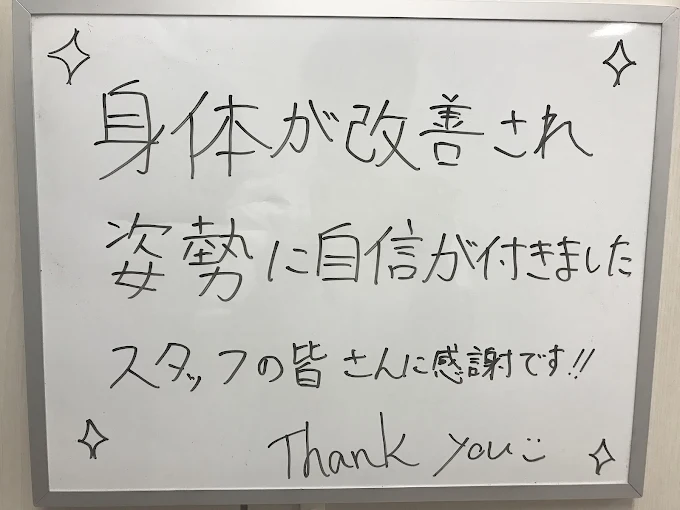 身体が改善され
姿勢に自信が付きました
スタッフの皆さんに感謝です!!
Thank you